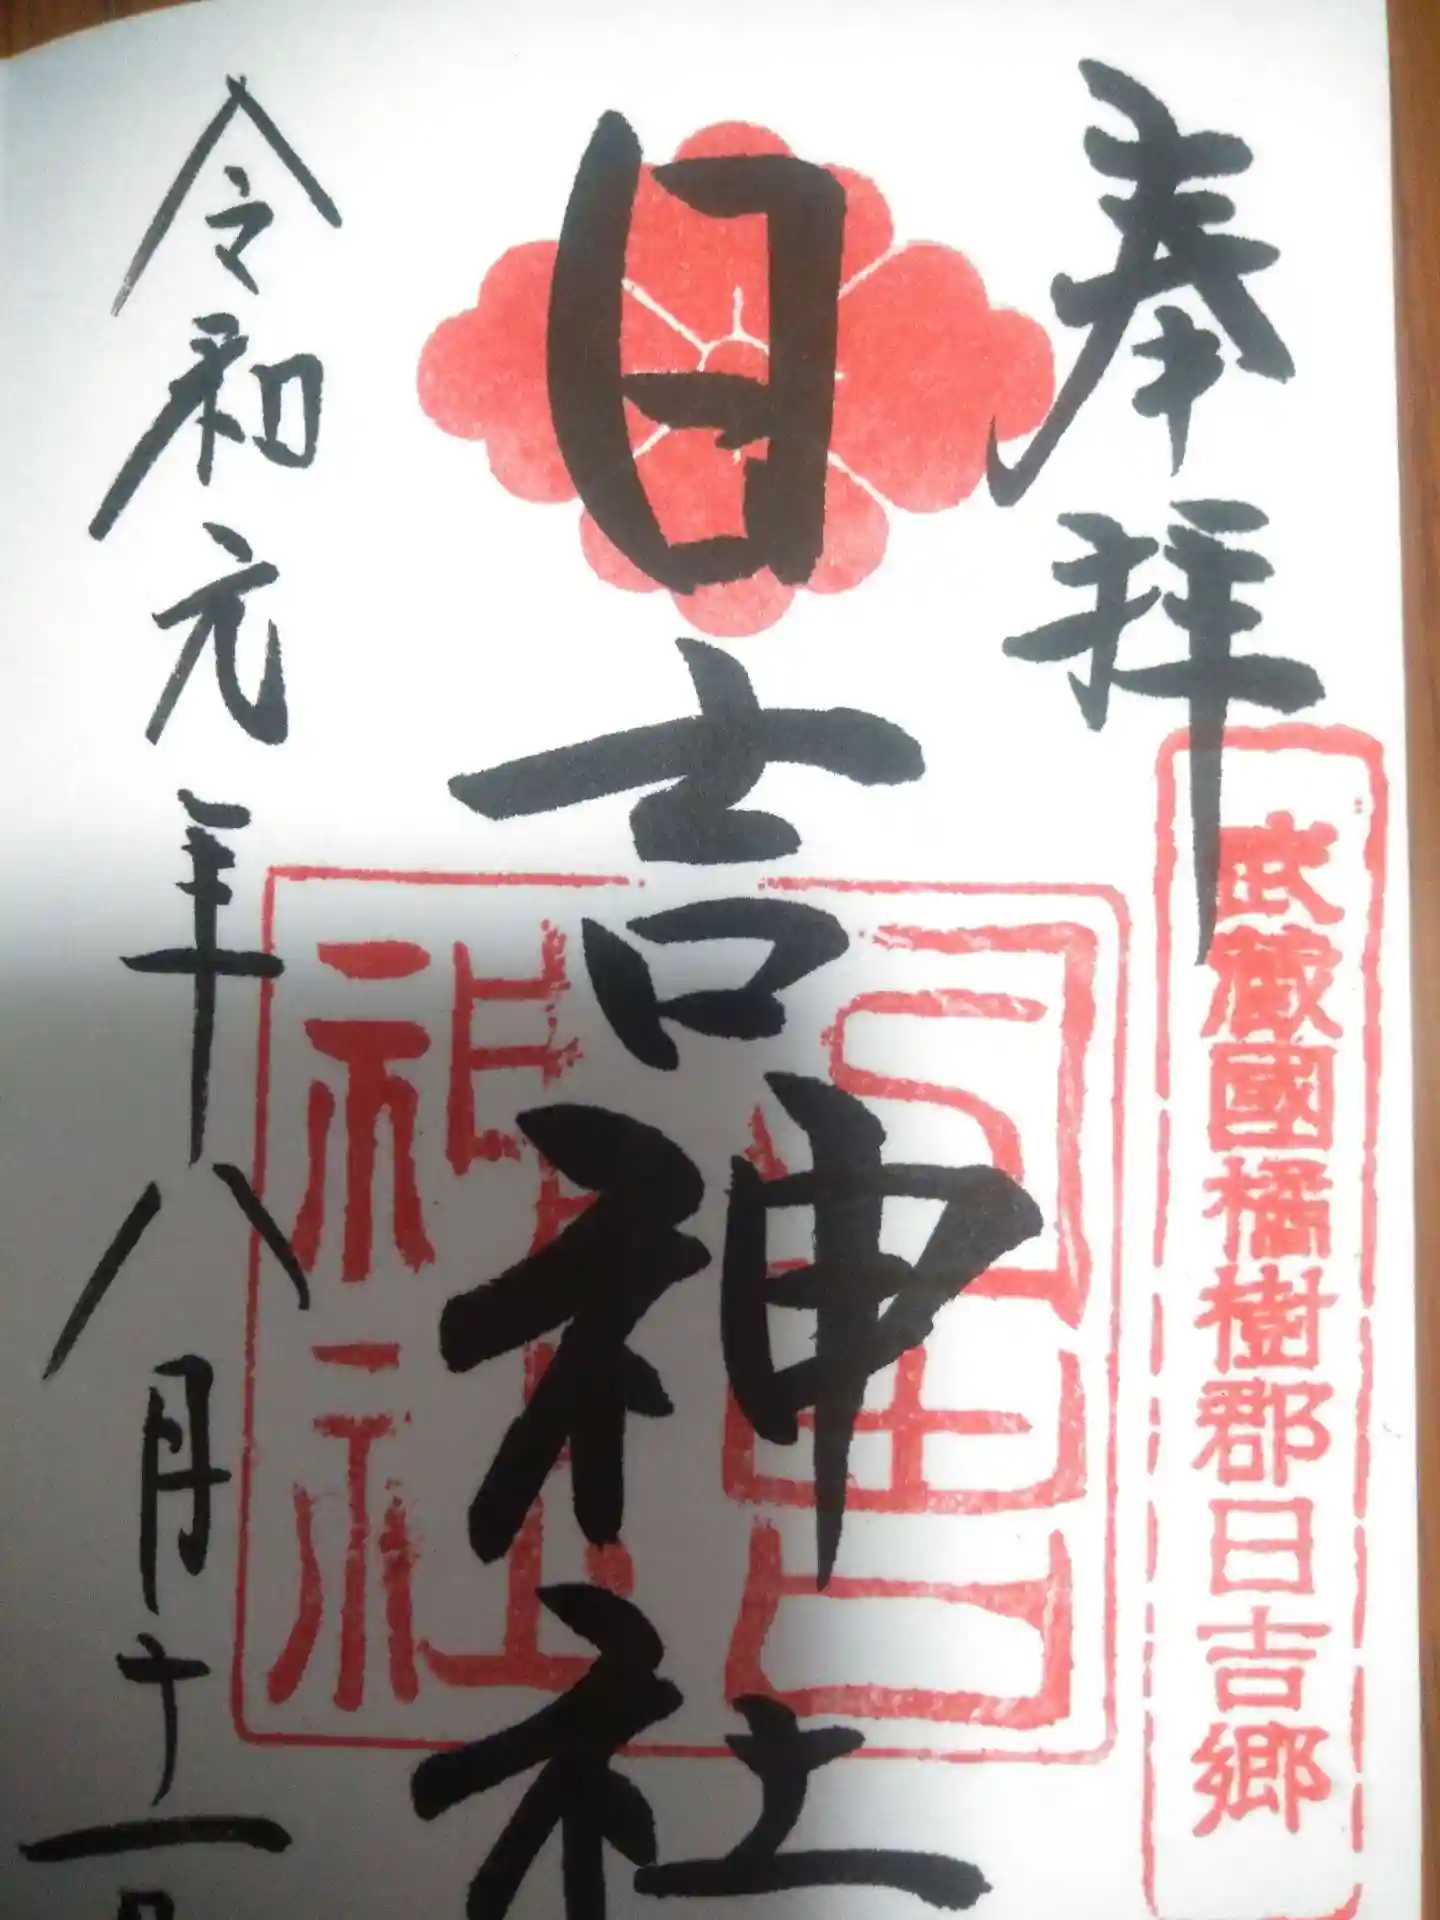 奉拝
武蔵國橘樹郡日吉郷
日吉神社
日吉
神社
令和元年八月十一日